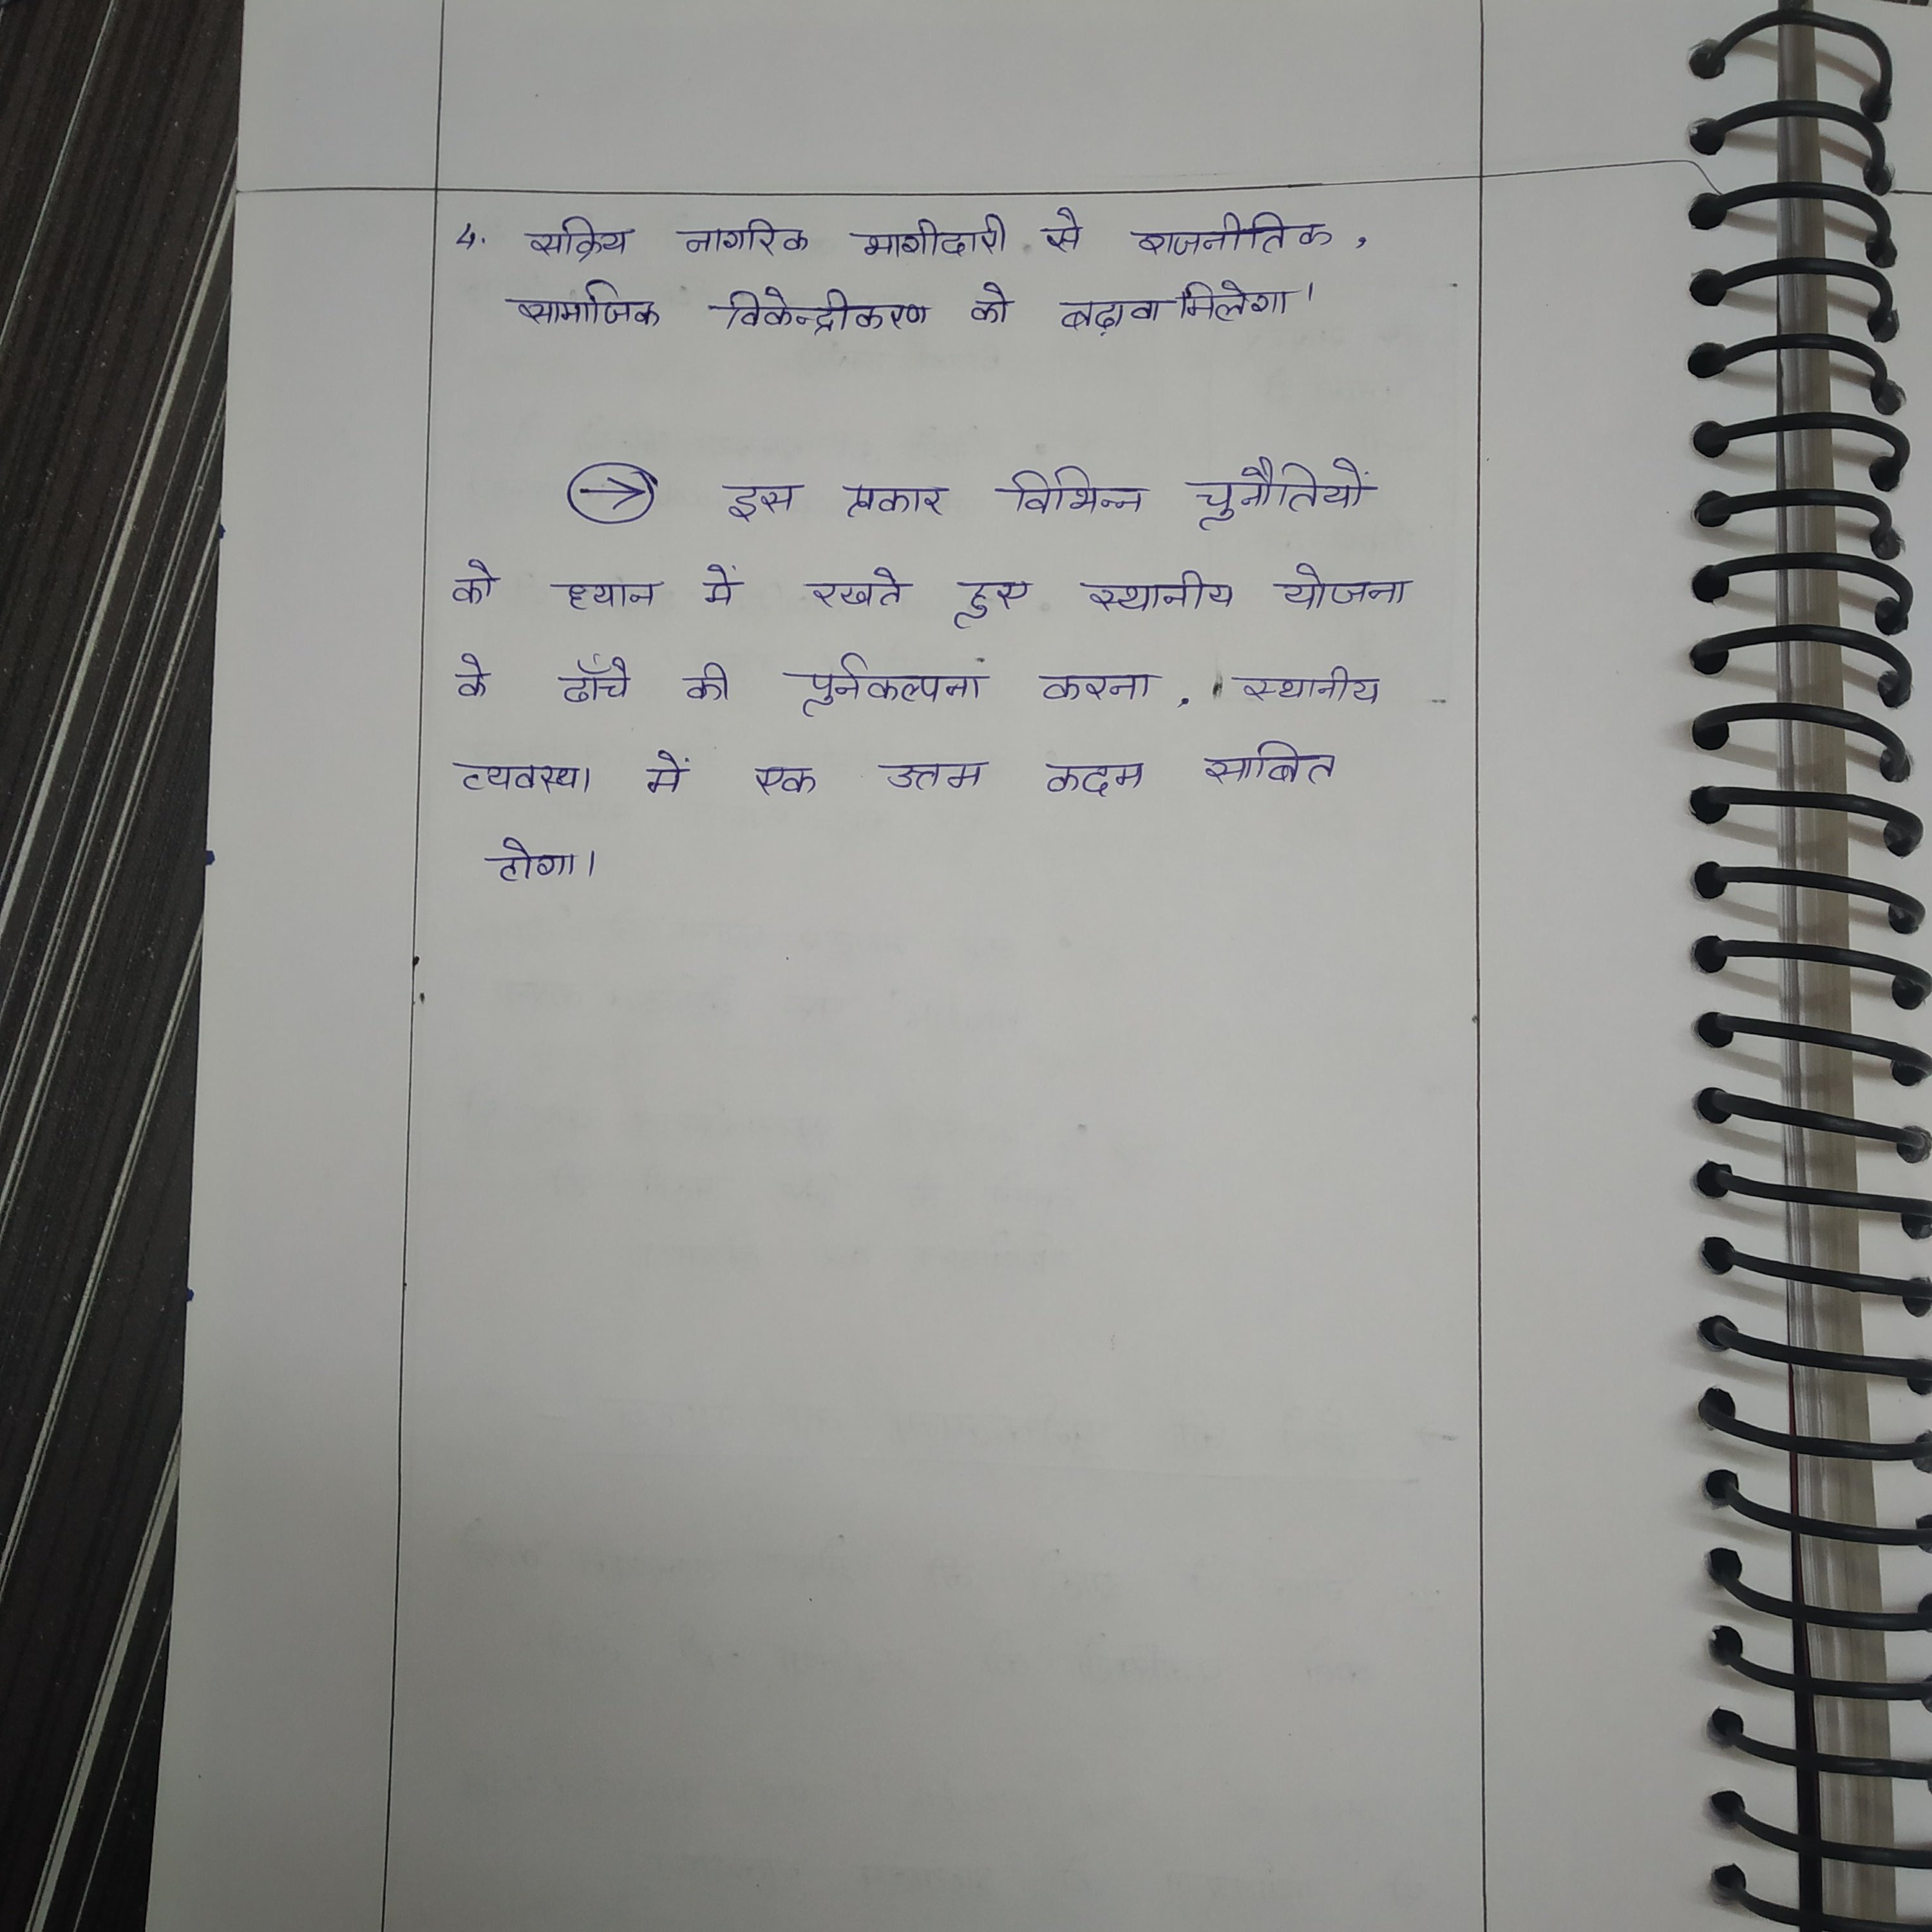 4. सक्रिय नागरिक भागीदारी से राजनीतिक,
सामाजिक विकेन्द्रीकरण को बढ़ावा मिलेगा।
→ इस प्रकार विभिन्न चुनौतियों
को ध्यान में रखते हुए स्थानीय योजना
के ढाँचे की पुर्नकल्पना करना, स्थानीय
व्यवस्था में एक उत्तम कदम साबित
होगा।